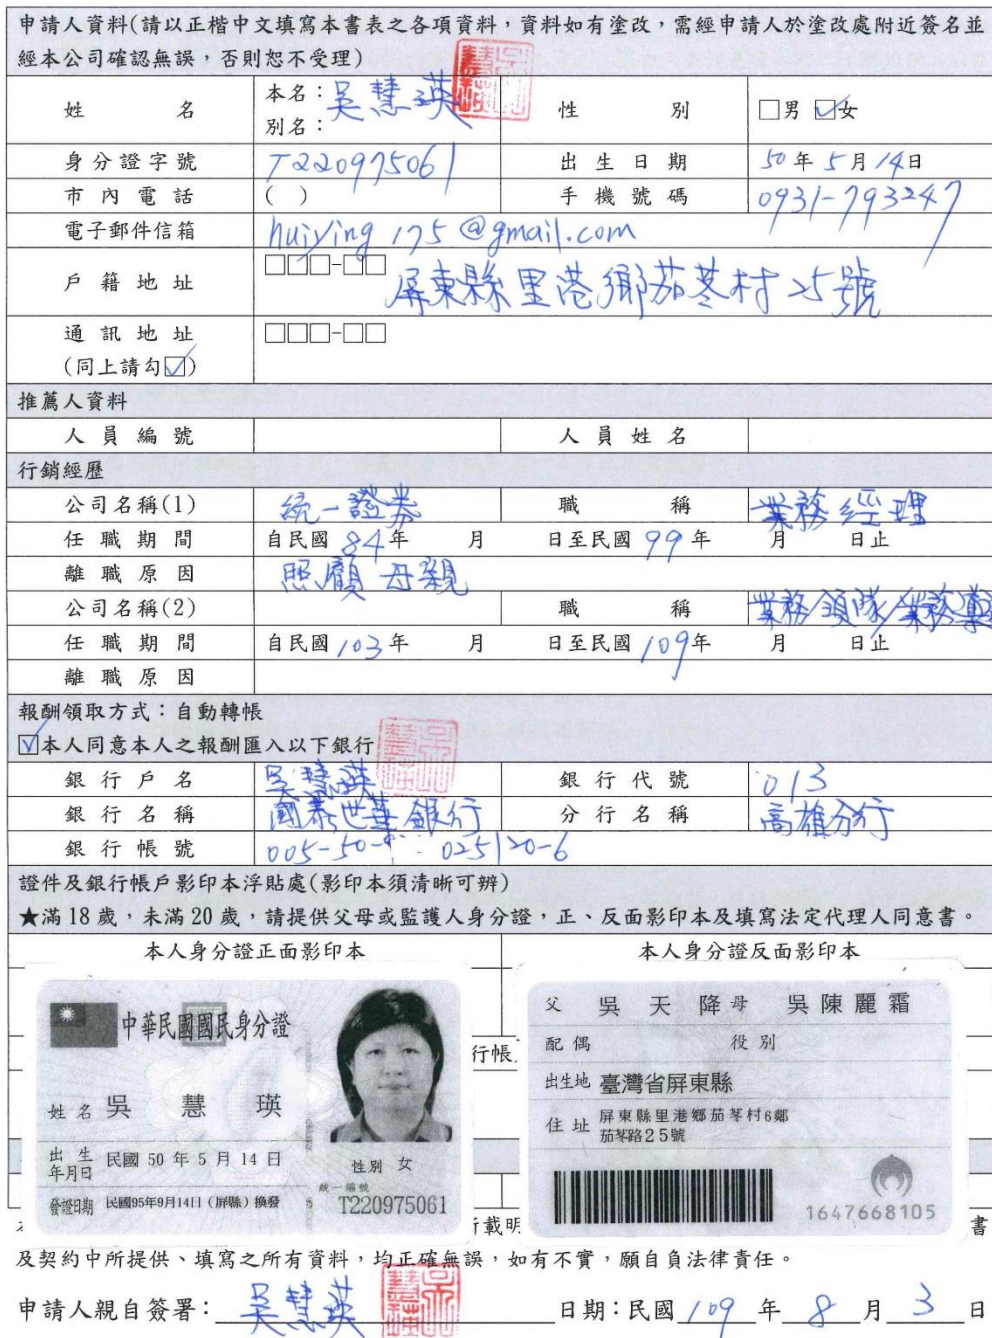 申請人資料(請以正楷中文填寫本書表之各項資料，資料如有塗改，需經申請人於塗改處附近簽名並
經本公司確認無誤，否則恕不受理)
姓名 本名：吳慧瑛 別名： 性別 □男 ☑女
身分證字號 T220975061 出生日期 50年5月14日
市內電話 ( ) 手機號碼 0931-793247
電子郵件信箱 huiying175@gmail.com
戶籍地址 □□□-□□ 屏東縣里港鄉茄苳村25號
通訊地址 □□□-□□
(同上請勾☑)
推薦人資料
人員編號 人員姓名
行銷經歷
公司名稱(1) 統一證券 職稱 業務經理
任職期間 自民國84年 月 日至民國99年 月 日止
離職原因 照顧母親
公司名稱(2) 職稱 業務/領隊/業務
任職期間 自民國103年 月 日至民國109年 月 日止
離職原因
報酬領取方式：自動轉帳
☑本人同意本人之報酬匯入以下銀行
銀行戶名 吳慧瑛 銀行代號 013
銀行名稱 國泰世華銀行 分行名稱 高雄分行
銀行帳號 005-50- 025120-6
證件及銀行帳戶影印本浮貼處(影印本須清晰可辨)
★滿18歲，未滿20歲，請提供父母或監護人身分證，正、反面影印本及填寫法定代理人同意書。
本人身分證正面影印本 本人身分證反面影印本
中華民國國民身分證
姓名 吳慧瑛
出生年月日 民國50年5月14日 性別 女
發證日期 民國95年9月14日（屏縣）換發
統一編號 T220975061
行帳
父 吳天降 母 吳陳麗霜
配偶 役別
出生地 臺灣省屏東縣
住址 屏東縣里港鄉茄苳村6鄰
茄苳路25號
1647668105
載明 書
及契約中所提供、填寫之所有資料，均正確無誤，如有不實，願自負法律責任。
申請人親自簽署：吳慧瑛 日期：民國109年8月3日